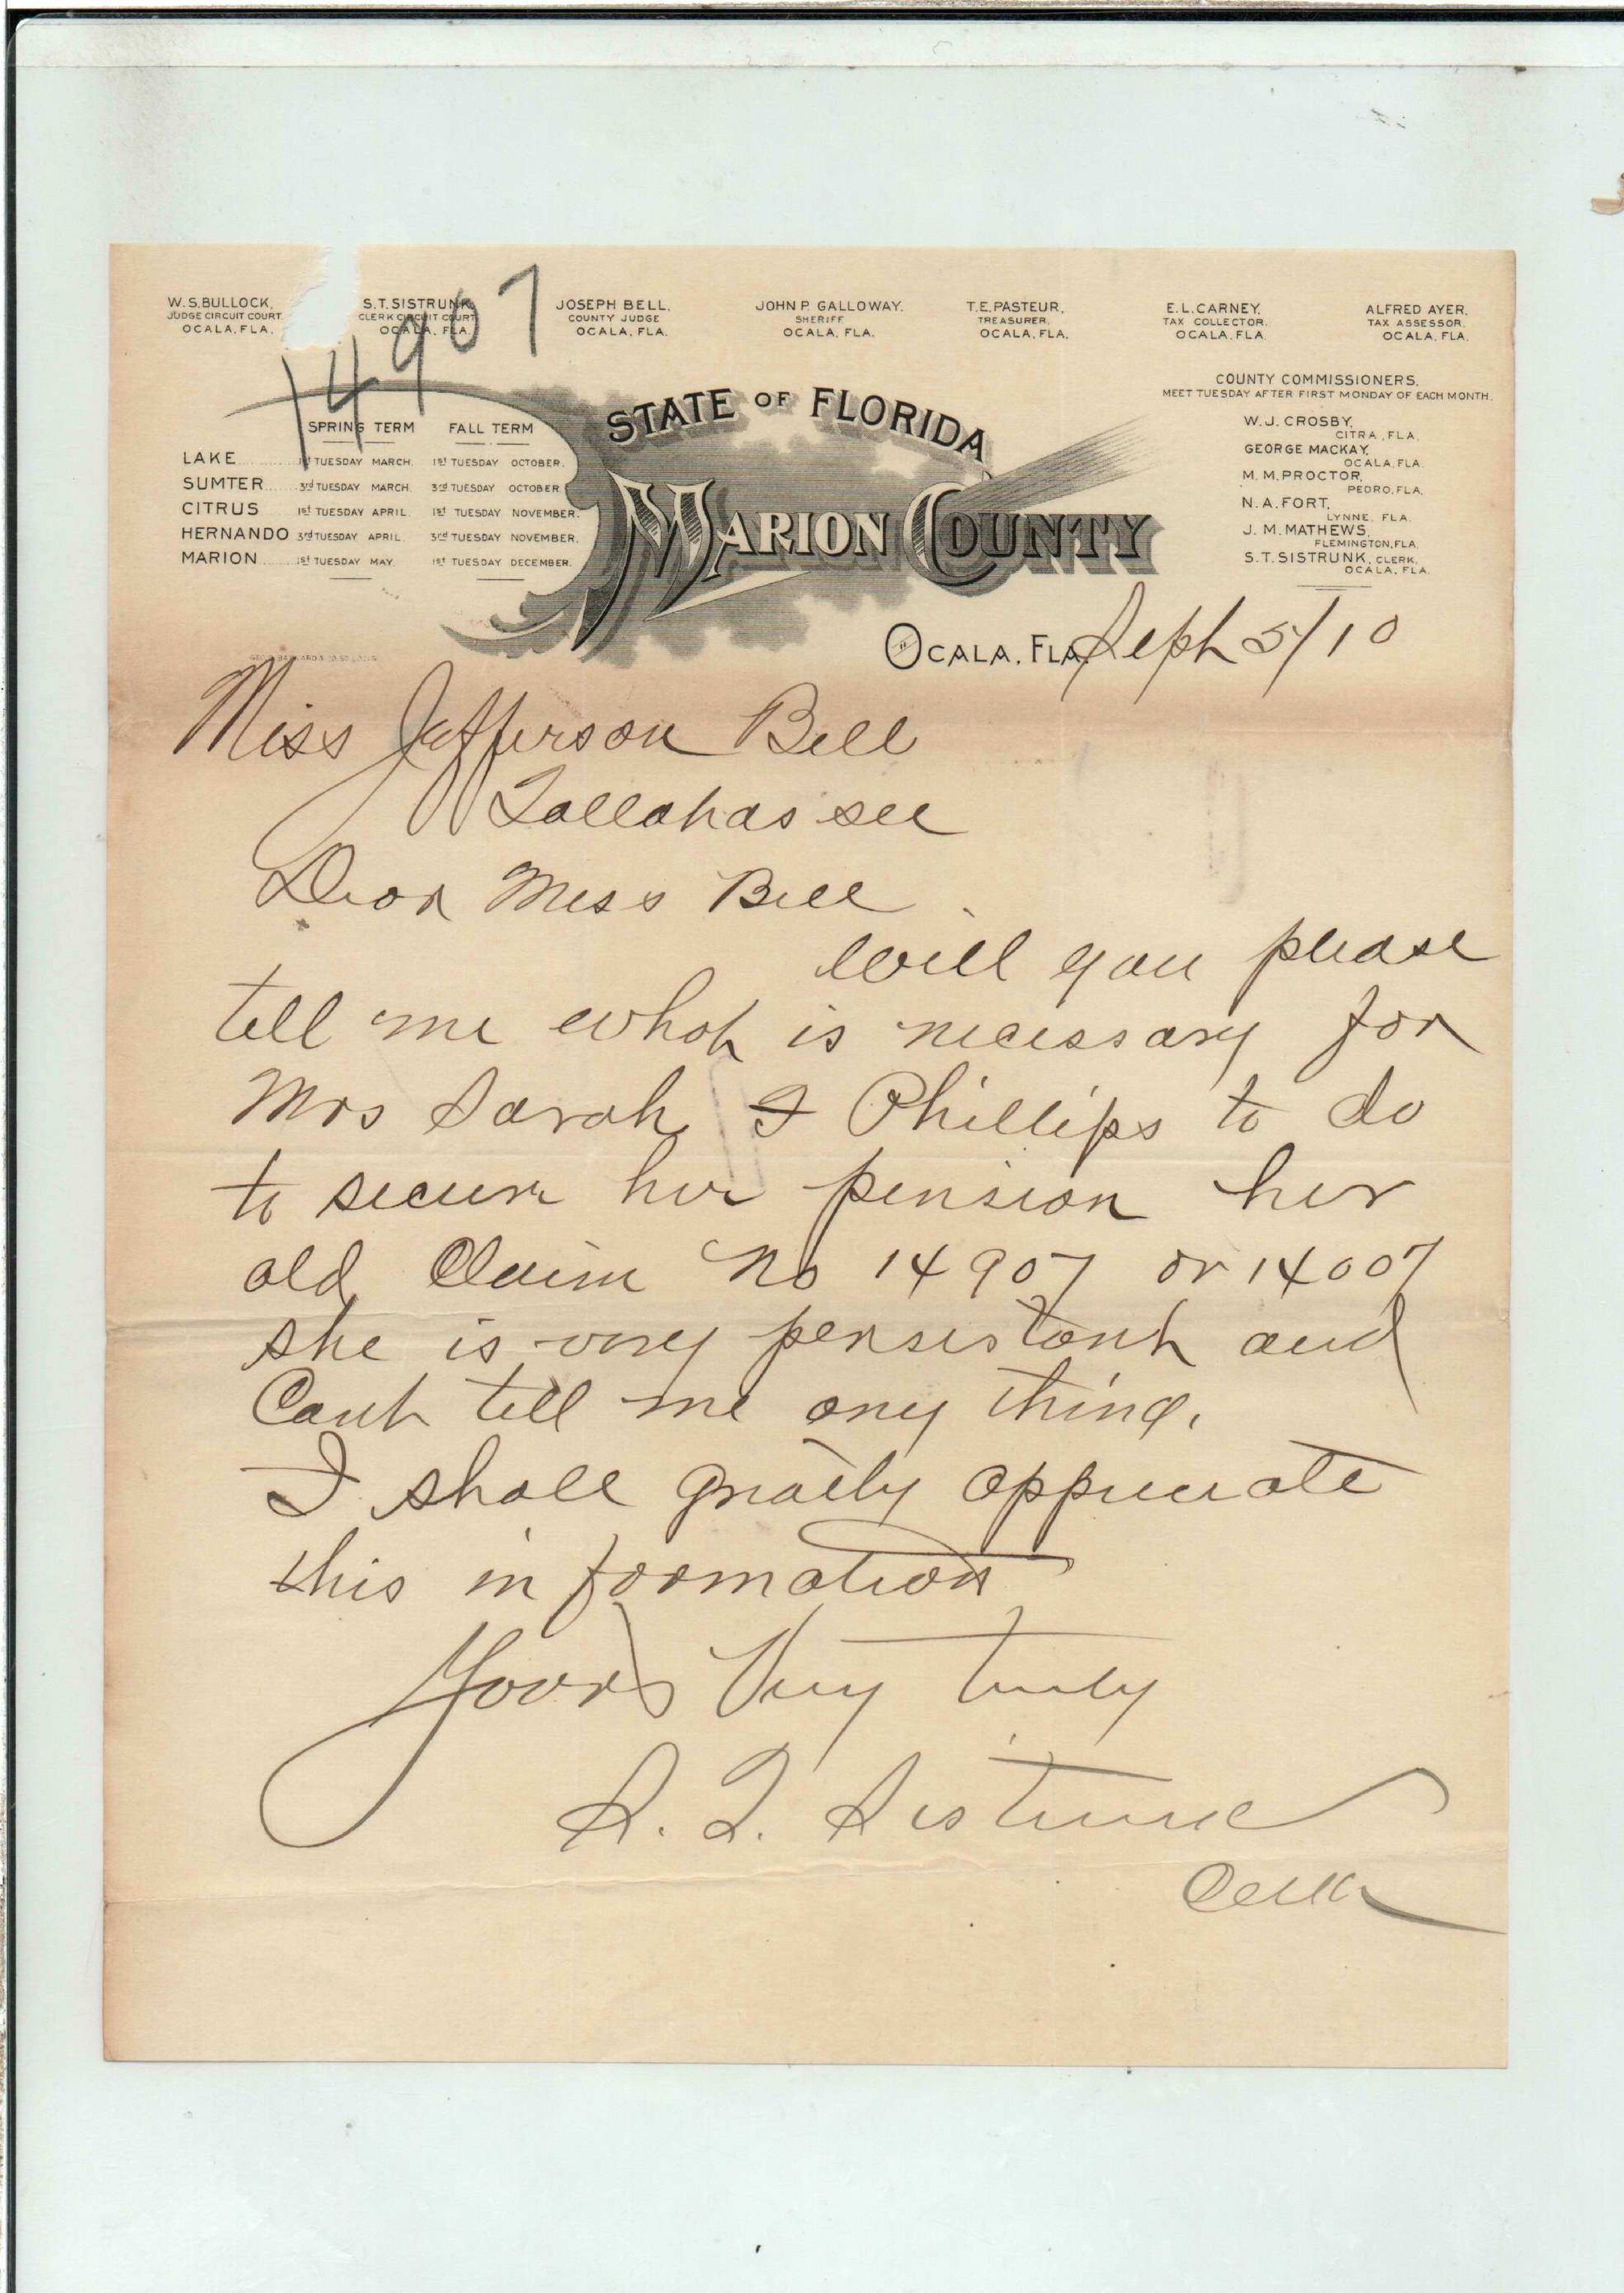 14907
W. S. BULLOCK,
JUDGE CIRCUIT COURT
OCALA, FLA.
S. T. SISTRUNK
CLERK CIRCUIT COURT
OCALA, FLA.
JOSEPH BELL,
COUNTY JUDGE
OCALA, FLA.
JOHN P. GALLOWAY.
SHERIFF
OCALA, FLA.
T. E. PASTEUR,
TREASURER.
OCALA, FLA.
E. L. CARNEY,
TAX COLLECTOR.
OCALA. FLA.
ALFRED AYER,
TAX ASSESSOR.
OCALA, FLA.
SPRING TERM FALL TERM
LAKE 1st TUESDAY MARCH. 1st TUESDAY OCTOBER.
SUMTER 3rd TUESDAY MARCH. 3rd TUESDAY OCTOBER
CITRUS 1st TUESDAY APRIL. 1st TUESDAY NOVEMBER.
HERNANDO 3rd TUESDAY APRIL. 3rd TUESDAY NOVEMBER.
MARION 1st TUESDAY MAY. 1st TUESDAY DECEMBER.
STATE OF FLORIDA
MARION COUNTY
COUNTY COMMISSIONERS.
MEET TUESDAY AFTER FIRST MONDAY OF EACH MONTH.
W. J. CROSBY,
CITRA, FLA.
GEORGE MACKAY,
OCALA, FLA.
M. M. PROCTOR,
PEDRO, FLA.
N. A. FORT,
LYNNE, FLA.
J. M. MATHEWS,
FLEMINGTON, FLA.
S. T. SISTRUNK, CLERK,
OCALA, FLA.
OCALA, FLA. Sept 5/10
Miss Jefferson Bell
Tallahassee
Dear Miss Bell
Will you please
tell me what is necessary for
Mrs Sarah J Phillips to do
to secure her pension her
old Claim No 14907 or 14007
she is very persistant and
Cant tell me any thing.
I shall greatly appreciate
this information
Yours Very truly
S. T. Sistrunk
Clerk